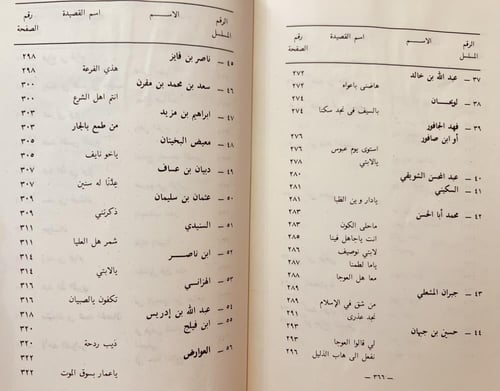 الرقم المسلسل الاســم اسم القصيدة رقم الصفحة
٣٧ ـ عبد الله بن خالد ٢٧٢
هاضنى باعواه ٢٧٢
٣٨ ـ لويحان ٢٧٤
بالسيف فى نجد سكنا ٢٧٤
٣٩ ـ فهد الجافور
أو ابن صافور ٢٧٦
استوى يوم عبوس ٢٧٦
يالابتي ٢٧٨
٤٠ ـ عبد المحسن الشويقي ٢٨٠
٤١ ـ السكيني ٢٨١
يادار و ين الظبا ٢٨١
٤٢ ـ محمد أبا الحسن ٢٨٣
ماحلى الكون ٢٨٣
انت ياجاهل فينا ٢٨٥
لابتي نوصيف ٢٨٦
ياما لطمنا ٢٨٧
معا هل العوجا ٢٨٨
٤٣ ـ جبران المشعلي ٢٨٩
من شق في الإسلام ٢٨٩
نجد عذرى ٢٩١
٤٤ ـ حسين بن جيهان ٢٩٣
لي قالوا العوجا ٢٩٣
نفعل الى هاب الذليل ٢٩٦
ـ ٣٦٦ ـ
الرقم المسلسل الاســم اسم القصيدة رقم الصفحة
٤٥ ـ ناصر بن فايز ٢٩٨
هذي الفرعة ٢٩٨
٤٦ ـ سعد بن محمد بن مقرن ٣٠٠
انتم اهل الشرع ٣٠٠
٤٧ ـ ابراهيم بن مزيد ٣٠٣
من طمع بالجار ٣٠٣
٤٨ ـ معيض البخيتان ٣٠٥
ياخو نايف ٣٠٥
٤٩ ـ دبيان بن عساف ٣٠٧
عِدْنَا له سنين ٣٠٧
٥٠ ـ عثمان بن سليمان ٣٠٩
ذكرتني ٣٠٩
٥١ ـ السنيدي ٣١١
شمر هل العليا ٣١١
٥٢ ـ ابن ناصر ٣١٤
يالابتي ٣١٤
٥٣ ـ الهزاني ٣١٦
تكفون يالصبيان ٣١٦
٥٤ ـ عبد الله بن إدريس ٣١٨
٥٥ ـ ابن فيلج ٣٢٠
ذيب ردحة ٣٢٠
٥٦ ـ العوارض ٣٢٢
ياعمار بسوق الموت ٣٢٢